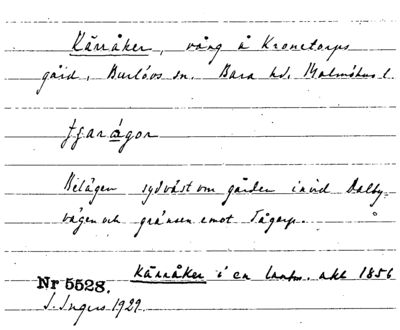 Kärråker, vång å Kronetorps
gård, Burlövs sn. Bara hd. Malmöhus l.
Belägen sydväst om gården invid Dalby-
vägen och gränsen emot Tågarp.
Kärråker i en lantm. akt 1856
Nr 5528.
I. Ingers 1929.